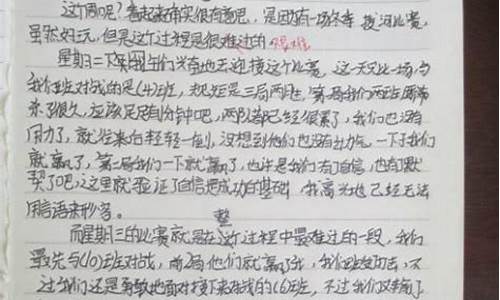 这个周呢?看起来确实很有意思,是因为有一场冬季拔河比赛,
虽然好玩,但是这个过程是很难过的 艰难
星期二下午同学们兴奋地去迎接这个比赛,这一天又比一场,与
我们班对战的是(4)班,规矩是三局两胜,第一局我们两班僵持
来了很久,应该足足有1分钟吧,两队都已经很累了,我们也没有
用力了,就往来自轻轻一拉,没想到他们也没有出力气,一下子我们
就赢了,第二局我们一下就赢了,也许是我们有了自信,也有了默
契了吧,这里就验证了自信是成功的基础,我高兴地已经无法
用言语来形容。
整
而星期三的比赛就是在这个过程中最难过的一段,我们
最先与(10)班对战,前2局他们就赢了我,我们班没力去,不
过我们还是勇敢地面对接下来对战的(6)班,不过我们又输了